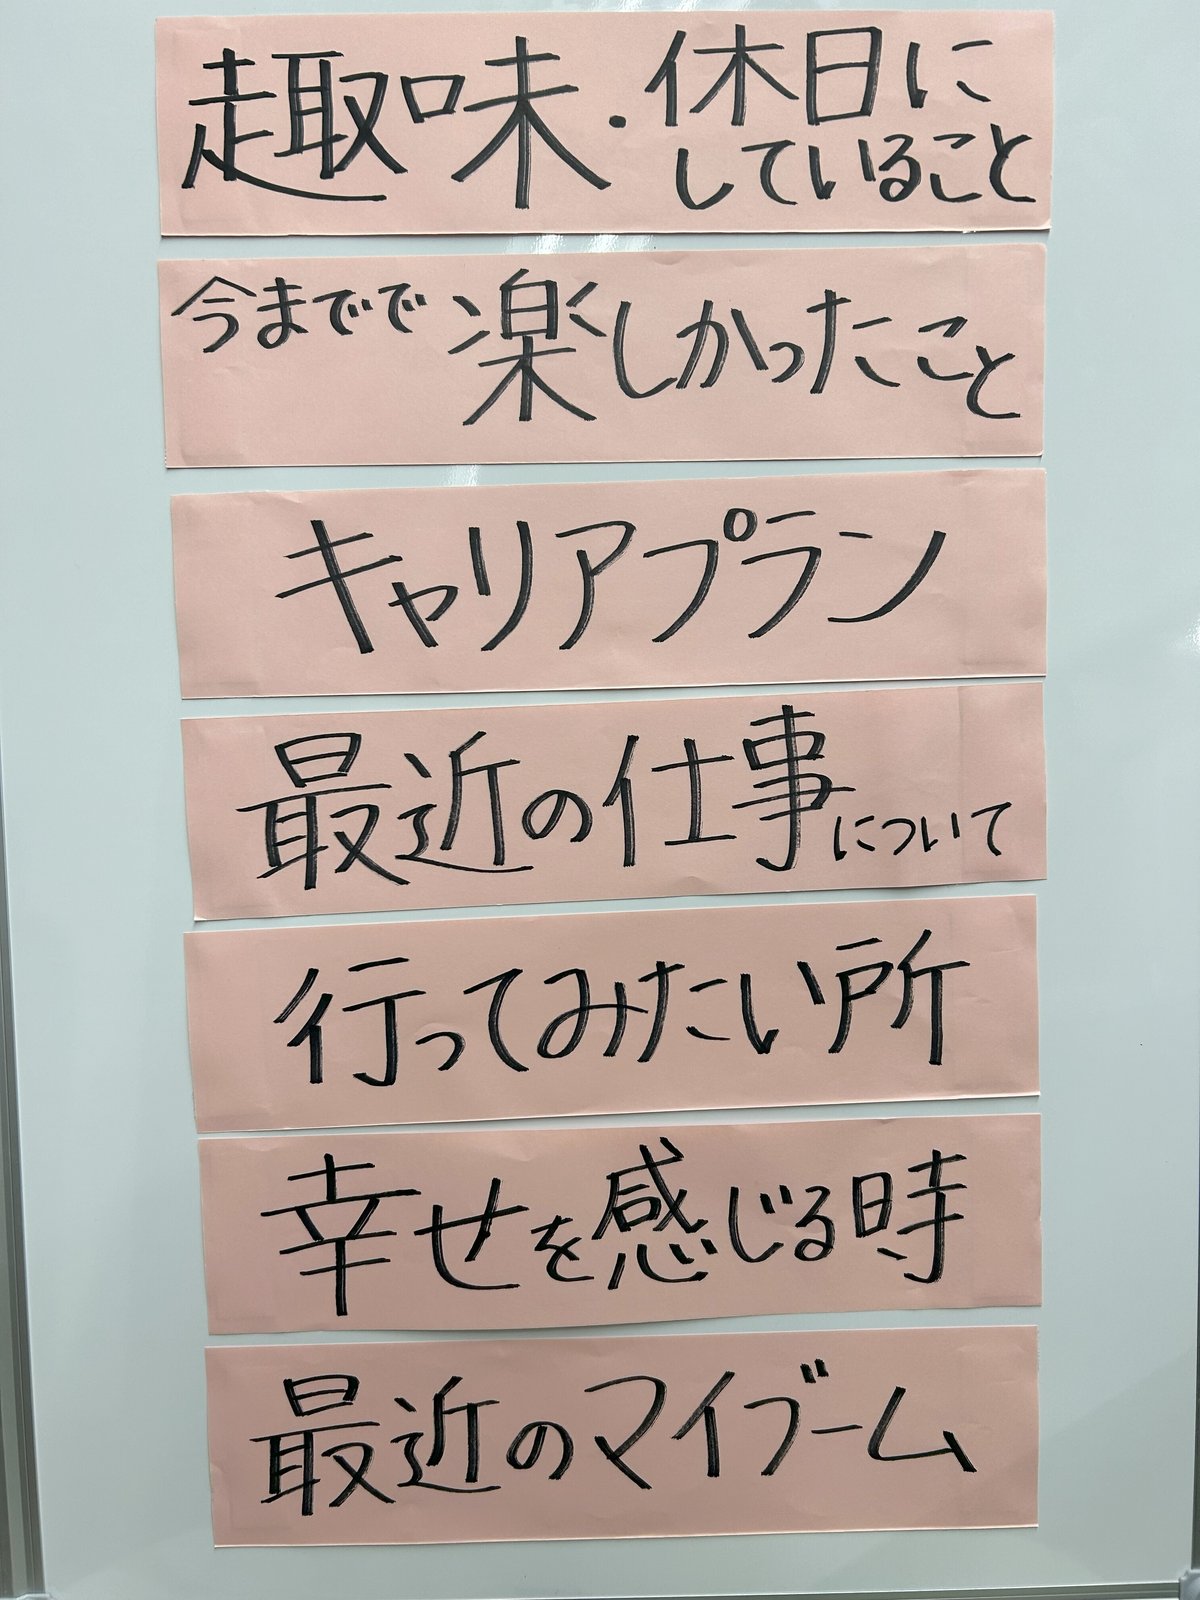 趣味・休日に
していること
今までで楽しかったこと
キャリアプラン
最近の仕事について
行ってみたい所
幸せを感じる時
最近のマイブーム